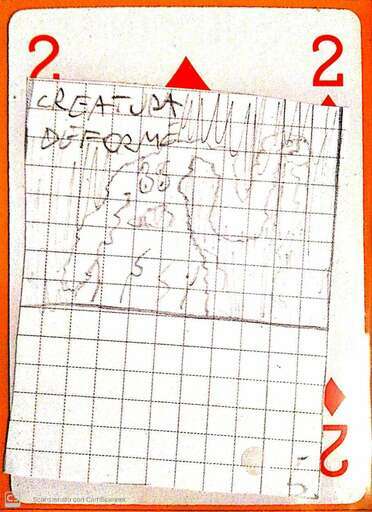 2 2
CREATURA
DEFORME
2
Scansionato con CamScanner